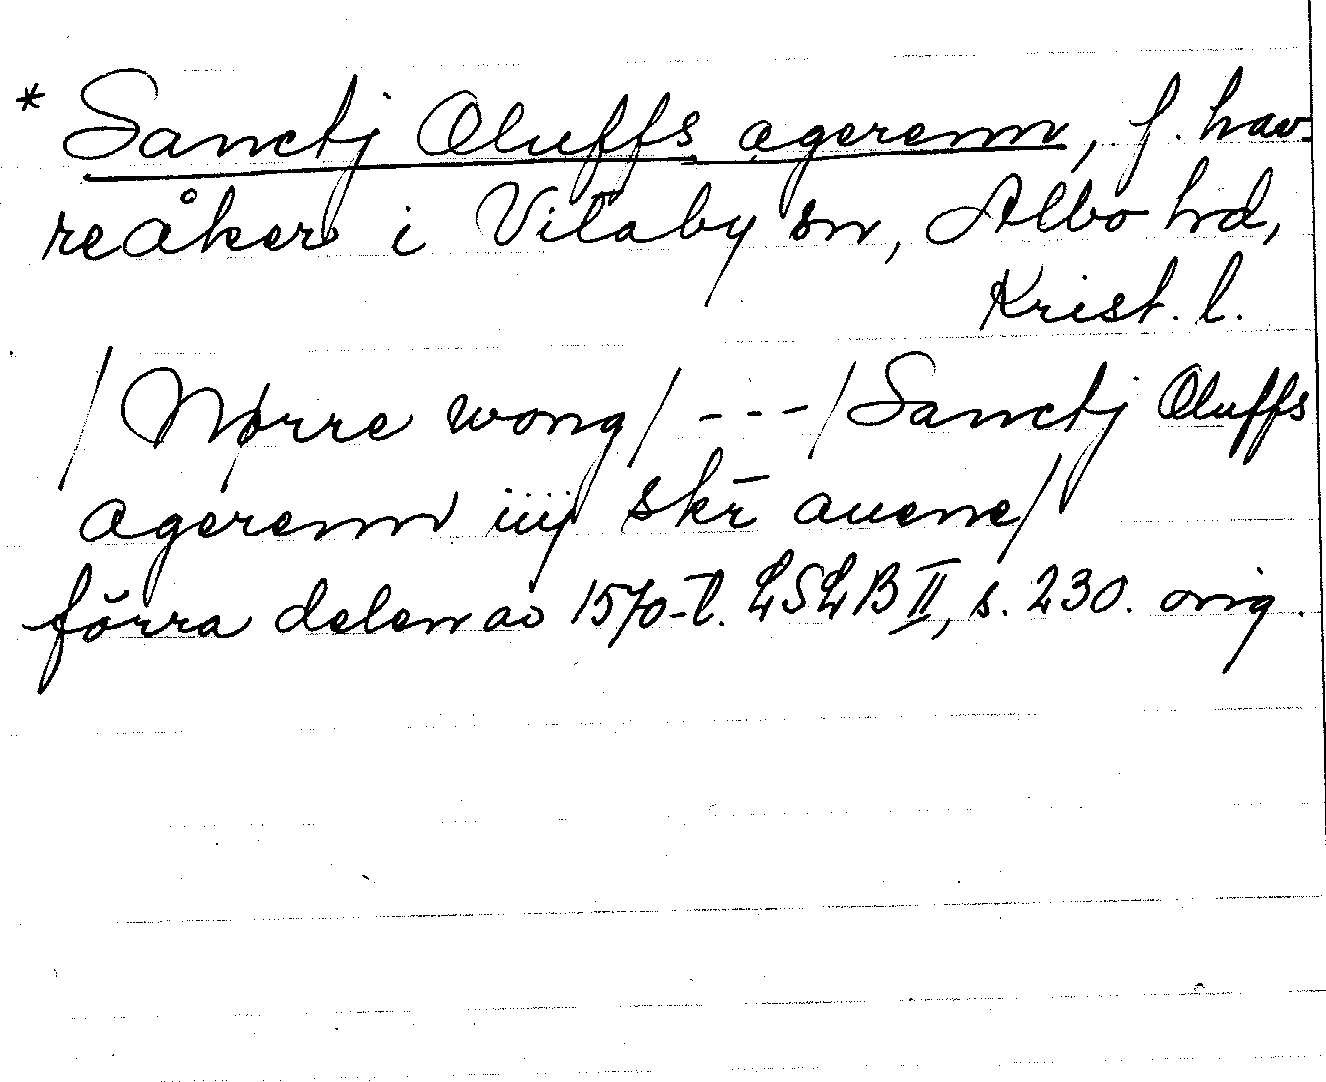 * Sanctj Oluffs agerenn, f. hav-
reåker i Vitaby sn, Albo hd,
Krist. l.
/Nørre wong/ --- /Sanctj Oluffs
agerenn iiij skr̄ auene/
förra delen av 1570-t. LSLB II, s. 230. orig.